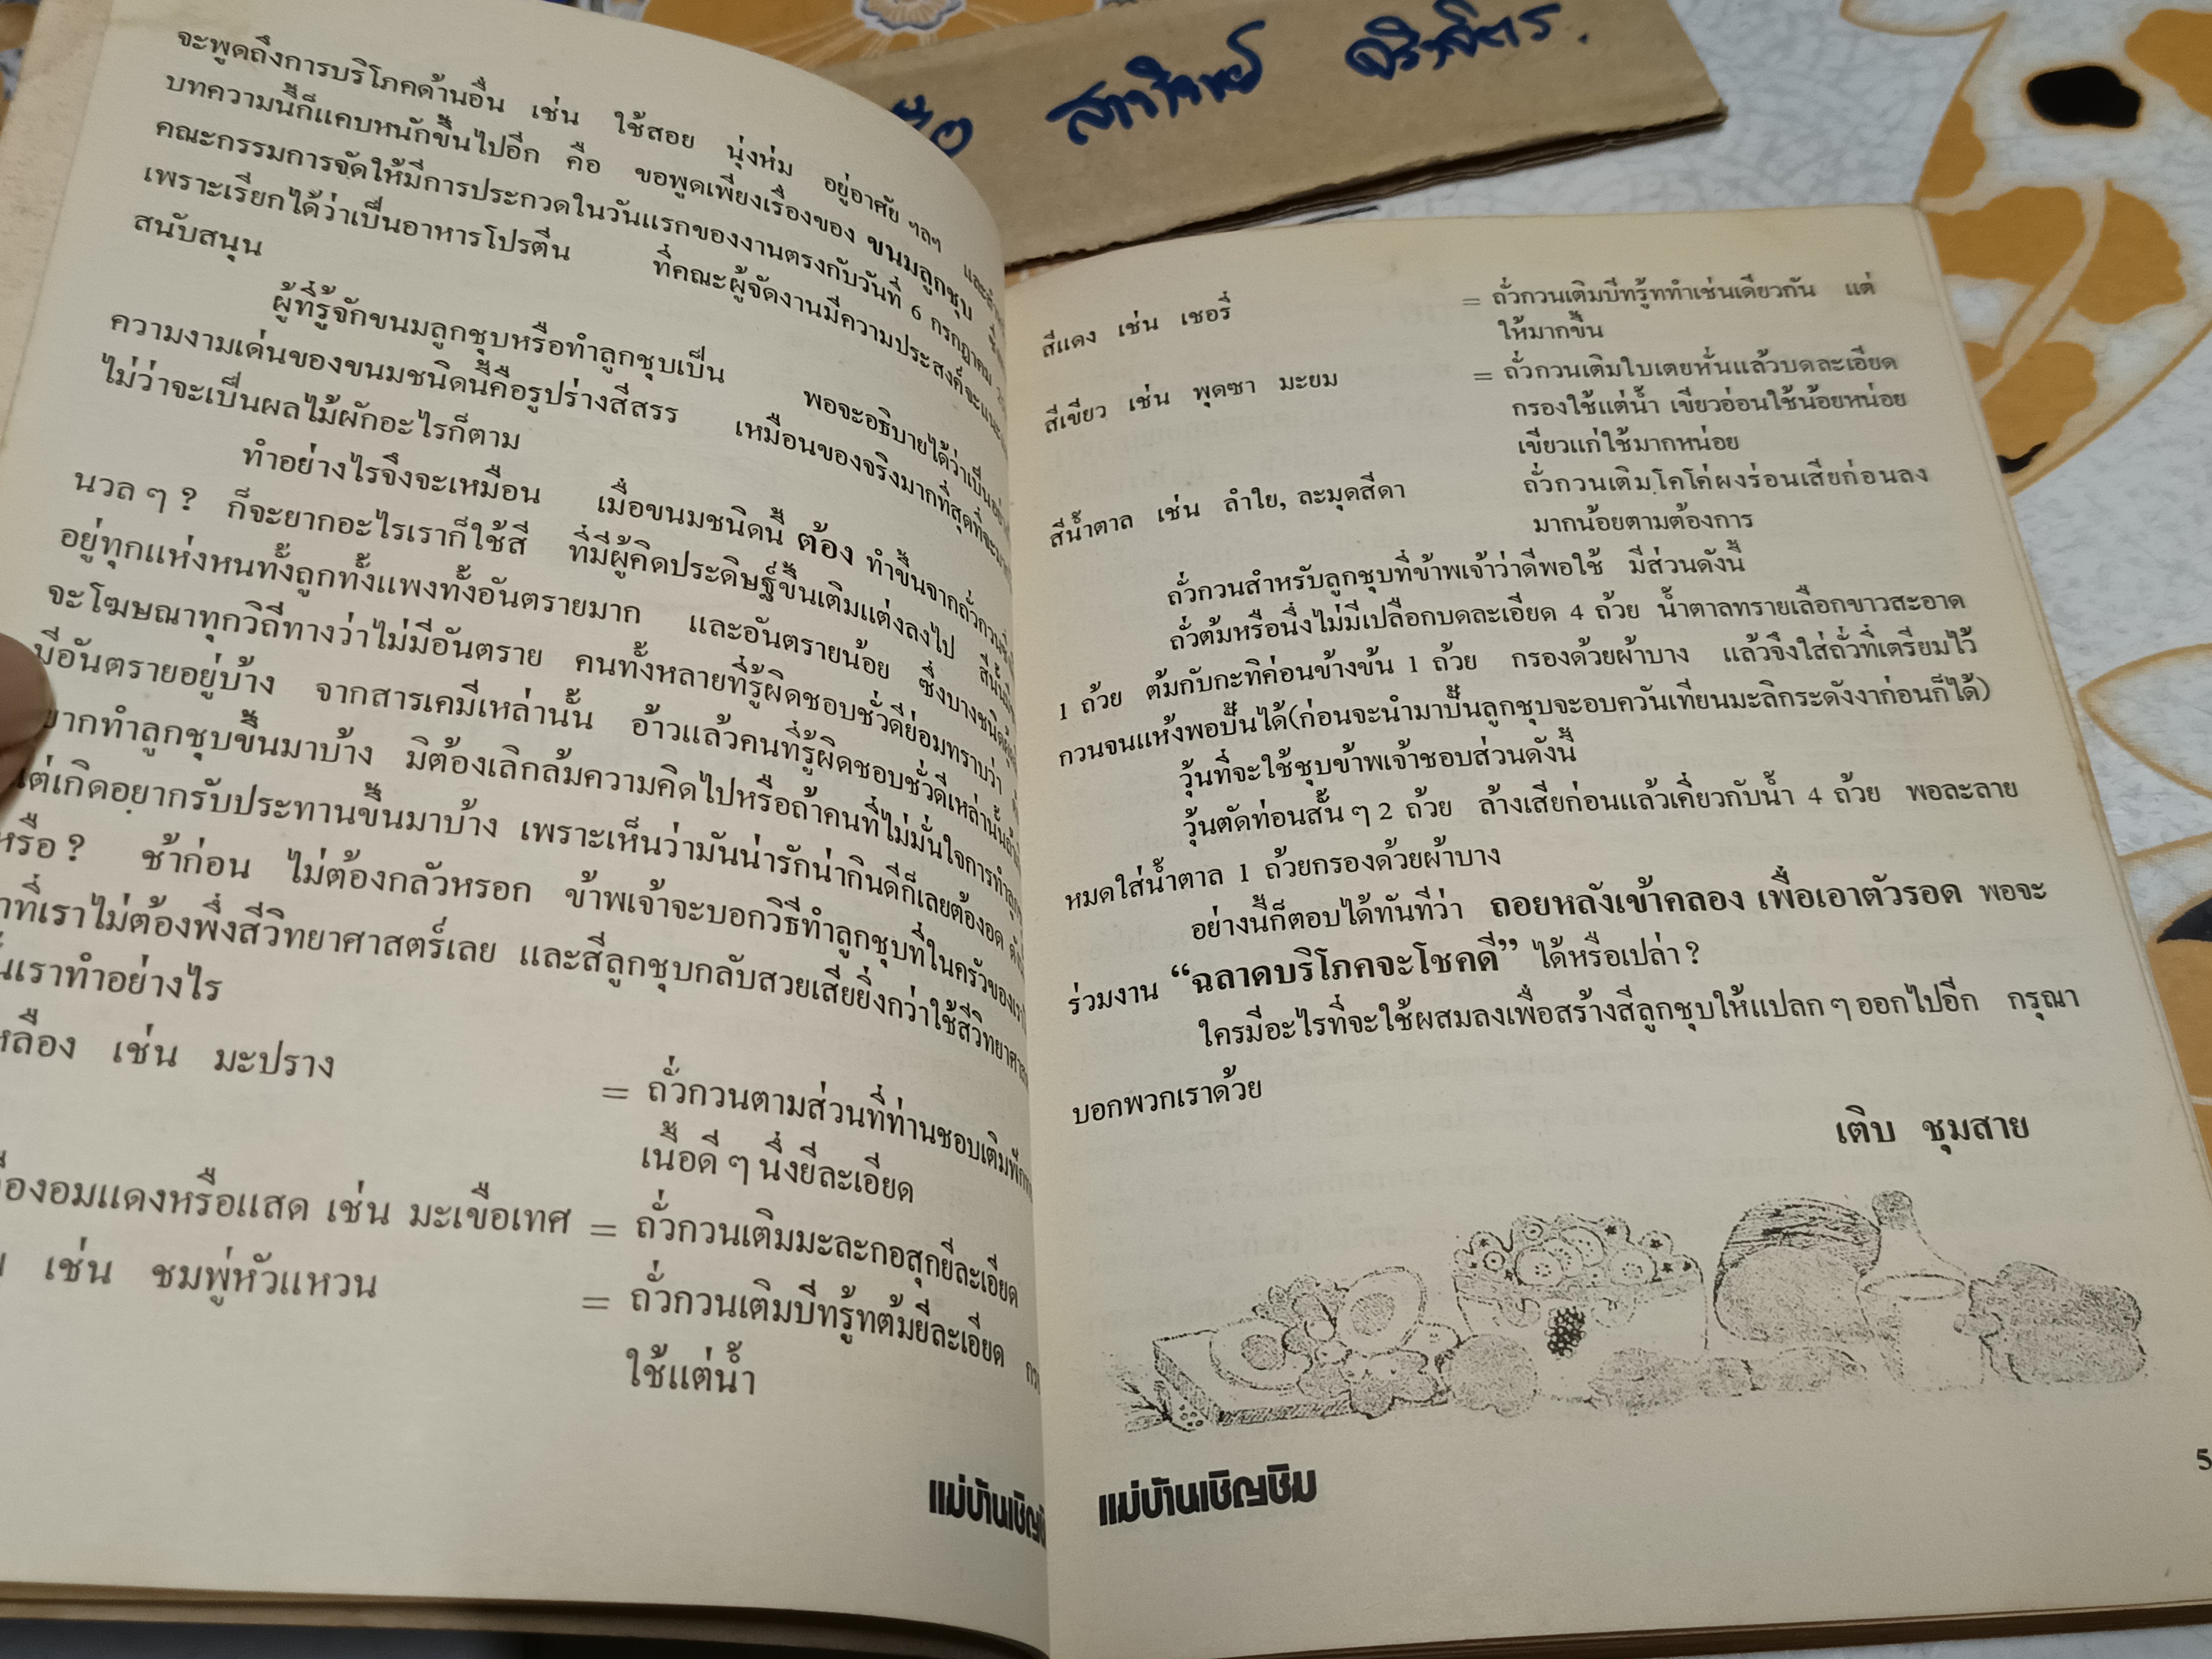 จะพูดถึงการบริโภคด้านอื่น เช่น ใช้สอย นุ่งห่ม อยู่อาศัย ฯลฯ
บทความนี้ก็แคบหนักขึ้นไปอีก คือ ขอพูดเพียงเรื่องของ ขนมลูกชุบ
คณะกรรมการจัดให้มีการประกวดในวันแรกของงานตรงกับวันที่ 6 กรกฎาคม
เพราะเรียกได้ว่าเป็นอาหารโปรตีน ที่คณะผู้จัดงานมีความประสงค์จะ
สนับสนุน
ผู้ที่รู้จักขนมลูกชุบหรือทำลูกชุบเป็น พอจะอธิบายได้ว่าเป็น
ความงามเด่นของขนมชนิดนี้คือรูปร่างสีสรร เหมือนของจริงมากที่สุดที่จะ
ไม่ว่าจะเป็นผลไม้ผักอะไรก็ตาม
ทำอย่างไรจึงจะเหมือน เมื่อขนมชนิดนี้ ต้อง ทำขึ้นจากถั่วกวน
นวล ๆ ? ก็จะยากอะไรเราก็ใช้สี ที่มีผู้คิดประดิษฐ์ขึ้นเติมแต่งลงไป สีนั้น
อยู่ทุกแห่งหนทั้งถูกทั้งแพงทั้งอันตรายมาก และอันตรายน้อย ซึ่งบางชนิด
จะโฆษณาทุกวิถีทางว่าไม่มีอันตราย คนทั้งหลายที่รู้ผิดชอบชั่วดีย่อมทราบว่า
มีอันตรายอยู่บ้าง จากสารเคมีเหล่านั้น อ้าวแล้วคนที่รู้ผิดชอบชั่วดีเหล่านั้น
ยากทำลูกชุบขึ้นมาบ้าง มิต้องเลิกล้มความคิดไปหรือถ้าคนที่ไม่มั่นใจการทำ
ต่เกิดอยากรับประทานขึ้นมาบ้าง เพราะเห็นว่ามันน่ารักน่ากินดีก็เลยต้องอด
หรือ ? ช้าก่อน ไม่ต้องกลัวหรอก ข้าพเจ้าจะบอกวิธีทำลูกชุบที่ในครัวของเรา
าที่เราไม่ต้องพึ่งสีวิทยาศาสตร์เลย และสีลูกชุบกลับสวยเสียยิ่งกว่าใช้สีวิทยา
นเราทำอย่างไร
หลือง เช่น มะปราง = ถั่วกวนตามส่วนที่ท่านชอบเติม
เนื้อดี ๆ นึ่งยีละเอียด
องอมแดงหรือแสด เช่น มะเขือเทศ = ถั่วกวนเติมมะละกอสุกยีละเอียด
เช่น ชมพู่หัวแหวน = ถั่วกวนเติมบีทรู้ทต้มยีละเอียด
ใช้แต่น้ำ
แม่บ้านเชิญ
สีแดง เช่น เชอรี่ = ถั่วกวนเติมบีทรู้ททำเช่นเดียวกัน แต่
ให้มากขึ้น
สีเขียว เช่น พุดซา มะยม = ถั่วกวนเติมใบเตยหั่นแล้วบดละเอียด
กรองใช้แต่น้ำ เขียวอ่อนใช้น้อยหน่อย
เขียวแก่ใช้มากหน่อย
สีน้ำตาล เช่น ลำใย, ละมุดสีดา ถั่วกวนเติมโคโค่ผงร่อนเสียก่อนลง
มากน้อยตามต้องการ
ถั่วกวนสำหรับลูกชุบที่ข้าพเจ้าว่าดีพอใช้ มีส่วนดังนี้
ถั่วต้มหรือนึ่งไม่มีเปลือกบดละเอียด 4 ถ้วย น้ำตาลทรายเลือกขาวสะอาด
1 ถ้วย ต้มกับกะทิค่อนข้างข้น 1 ถ้วย กรองด้วยผ้าบาง แล้วจึงใส่ถั่วที่เตรียมไว้
กวนจนแห้งพอปั้นได้(ก่อนจะนำมาปั้นลูกชุบจะอบควันเทียนมะลิกระดังงาก่อนก็ได้)
วุ้นที่จะใช้ชุบข้าพเจ้าชอบส่วนดังนี้
วุ้นตัดท่อนสั้น ๆ 2 ถ้วย ล้างเสียก่อนแล้วเคี่ยวกับน้ำ 4 ถ้วย พอละลาย
หมดใส่น้ำตาล 1 ถ้วยกรองด้วยผ้าบาง
อย่างนี้ก็ตอบได้ทันทีว่า ถอยหลังเข้าคลอง เพื่อเอาตัวรอด พอจะ
ร่วมงาน “ฉลาดบริโภคจะโชคดี” ได้หรือเปล่า ?
ใครมีอะไรที่จะใช้ผสมลงเพื่อสร้างสีลูกชุบให้แปลก ๆ ออกไปอีก กรุณา
บอกพวกเราด้วย
เติบ ชุมสาย
แม่บ้านเชิญชิม
5